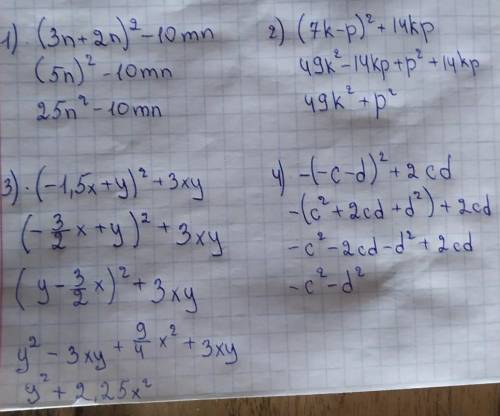 1). (3n+2n)² -10mn
(5n)² -10mn
25n² -10mn
2) (7k-p)² +14kp
49k² -14kp+p² +14kp
49k² +p²
3). (-1,5x+y)² +3xy
(-3/2 x+y)² +3xy
(y-3/2 x)² +3xy
y² -3xy+9/4 x² +3xy
y² +2,25x²
4) -(-c-d)² +2cd
-(c² +2cd+d²)+2cd
-c² -2cd-d² +2cd
-c² -d²